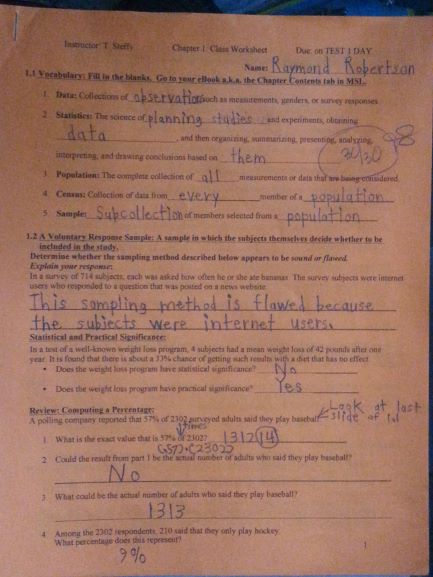 Instructor: T. Steffy Chapter 1: Class Worksheet Due: on TEST 1 DAY
Name: Raymond Robertson
1.1 Vocabulary: Fill in the blanks. Go to your eBook a.k.a. the Chapter Contents tab in MSL.
1. Data: Collections of observations such as measurements, genders, or survey responses
2. Statistics: The science of planning studies and experiments, obtaining
data, and then organizing, summarizing, presenting, analyzing,
interpreting, and drawing conclusions based on them
30/30
3. Population: The complete collection of all measurements or data that are being considered
4. Census: Collection of data from every member of a population
5. Sample: Subcollection of members selected from a population
1.2 A Voluntary Response Sample: A sample in which the subjects themselves decide whether to be
included in the study.
Determine whether the sampling method described below appears to be sound or flawed.
Explain your response:
In a survey of 714 subjects, each was asked how often he or she ate bananas. The survey subjects were internet
users who responded to a question that was posted on a news website.
This sampling method is flawed because
the subjects were internet users.
Statistical and Practical Significance:
In a test of a well-known weight loss program, 4 subjects had a mean weight loss of 42 pounds after one
year. It is found that there is about a 33% chance of getting such results with a diet that has no effect.
• Does the weight loss program have statistical significance? No
• Does the weight loss program have practical significance? Yes
Review: Computing a Percentage:
Look at last
slide of 1.1
A polling company reported that 57% of 2302 surveyed adults said they play baseball.
times
1. What is the exact value that is 57% of 2302? 1312.14
(.57)·(2302)
2. Could the result from part 1 be the actual number of adults who said they play baseball?
No
3. What could be the actual number of adults who said they play baseball?
1313
4. Among the 2302 respondents, 210 said that they only play hockey.
What percentage does this represent?
9%
1